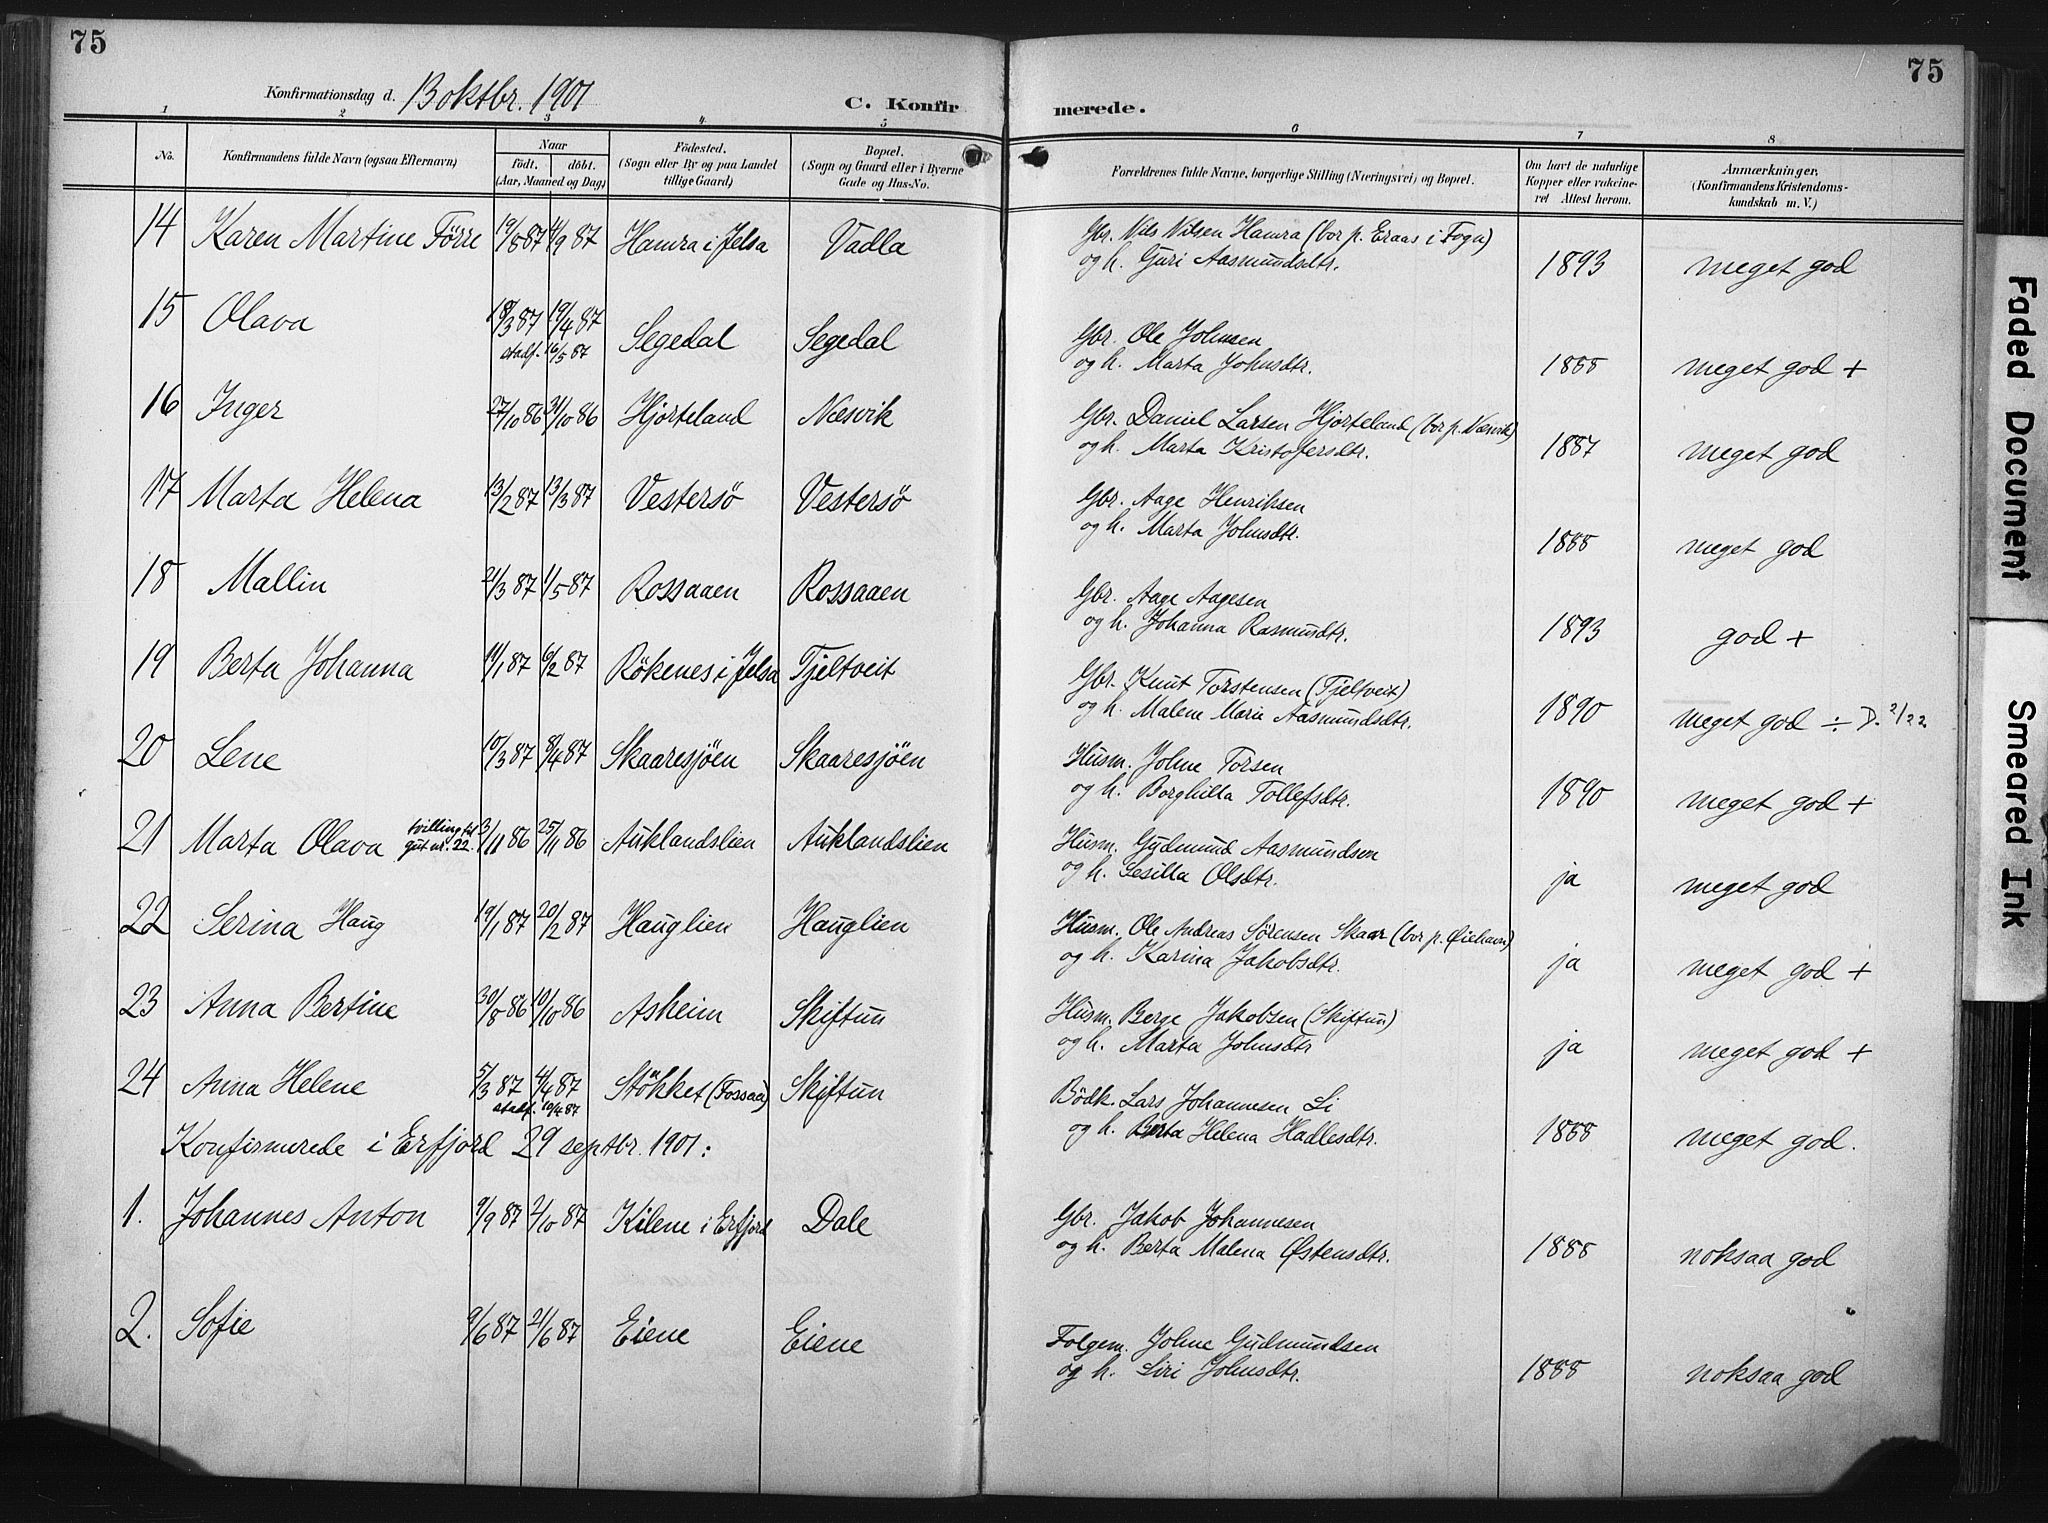 75
75
Konfirmationsdag d. 13 oktbr. 1901
C. Konfirmerede.
1 2 3 4 5 6 7 8
No. Konfirmandens fulde Navn (ogsaa Efternavn) Naar født. døbt. (Aar, Maaned og Dag) Fødested. (Sogn eller By og paa Landet tillige Gaard) Bopæl. (Sogn og Gaard eller i Byerne Gade og Hus-No.) Forældrenes fulde Navne, borgerlige Stilling (Næringsvei) og Bopæl. Om havt de naturlige Kopper eller vakcineret Attest herom. Anmærkninger. (Konfirmandens Kristendomskundskab m. V.)
14 Karen Martine Förre 19/8 87 11/9 87 Hamra i Jelsa Vadla Gbr. Nils Nilsen Hamra (bor p. Eraas i Fogn)
og h. Guri Aasmundsdtr. 1893 meget god
15 Olava 18/3 87 19/4 87 Segedal Segedal Gbr. Ole Johnsen
stadf. 16/5 87 og h. Marta Johnsdtr. 1888 meget god +
16 Inger 27/10 86 31/10 86 Hjorteland Næsvik Gbr. Daniel Larsen Hjorteland (bor p. Næsvik)
og h. Marta Kristofersdtr. 1887 meget god
17 Marta Helena 13/2 87 13/3 87 Vestersö Vestersö Gbr. Aage Henriksen
og h. Marta Johnsdtr. 1888 meget god
18 Mallin 21/3 87 1/5 87 Rossaaen Rossaaen Gbr. Aage Aagesen
og h. Johanna Rasmusdtr. 1893 god +
19 Berta Johanna 11/1 87 6/2 87 Rökenes i Jelsa Tjeltveit Gbr. Knut Torstensen (Tjeltveit)
og h. Malene Marie Aasmundsdtr. 1890 meget god ÷ D. 2/22
20 Lene 10/3 87 8/4 87 Skaaresjöen Skaaresjöen Husm. Johne Torsen
og h. Borghilla Tollefsdtr. 1890 meget god +
21 Marta Olava tvilling til gut nr. 22. 3/11 86 25/11 86 Auklandslien Auklandslien Husm. Gudmund Aasmundsen
og h. Sesilla Olsdtr. ja meget god
22 Serina Haug 19/1 87 20/2 87 Hauglien Hauglien Husm. Ole Andreas Sørensen Skaar (bor p. Øiehavn)
og h. Karina Jakobsdtr. ja meget god +
23 Anna Bertine 30/8 86 10/10 86 Asheim Skiftun Husm. Berge Jakobsen (Skiftun)
og h. Marta Johnsdtr ja meget god +
24 Anna Helene 5/3 87 4/4 87 Stökket (Fossaa) Skiftun Bödk. Lars Johannesen Li
stadf. 10/4 87 og h. Berta Helena Hadlesdtr. 1888 meget god.
Konfirmerede i Erfjord 29 septbr. 1901:
1. Johannes Anton 9/9 87 2/10 87 Kilene i Erfjord Dale Gbr. Jakob Johannesen
og h. Berta Malena Østensdtr. 1888 noksaa god
2. Sofie 9/6 87 21/6 87 Eiene Eiene Folgem. Johne Gudmundsen
og h. Siri Johnsdtr. 1888 noksaa god
Faded Document
Smeared Ink